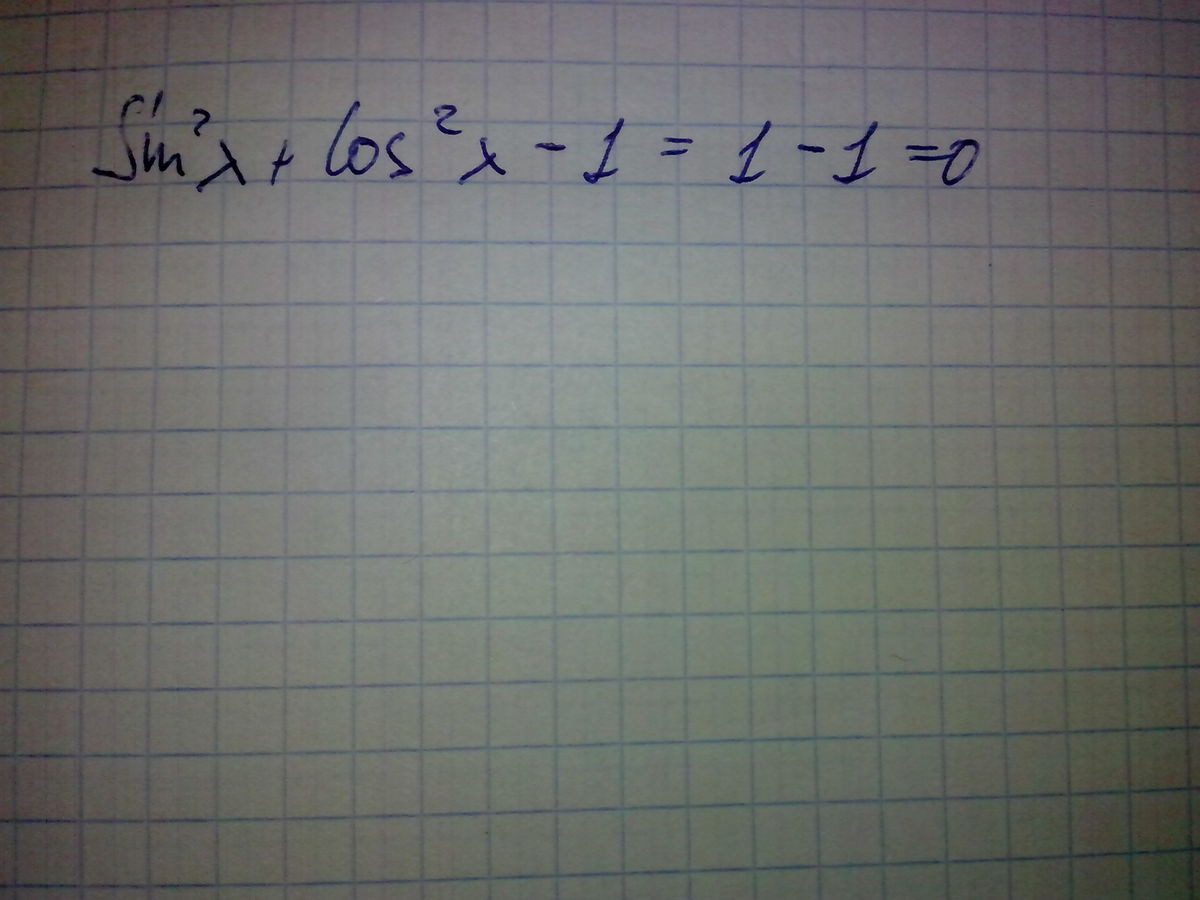 Sin²x + Cos²x - 1 = 1 - 1 = 0